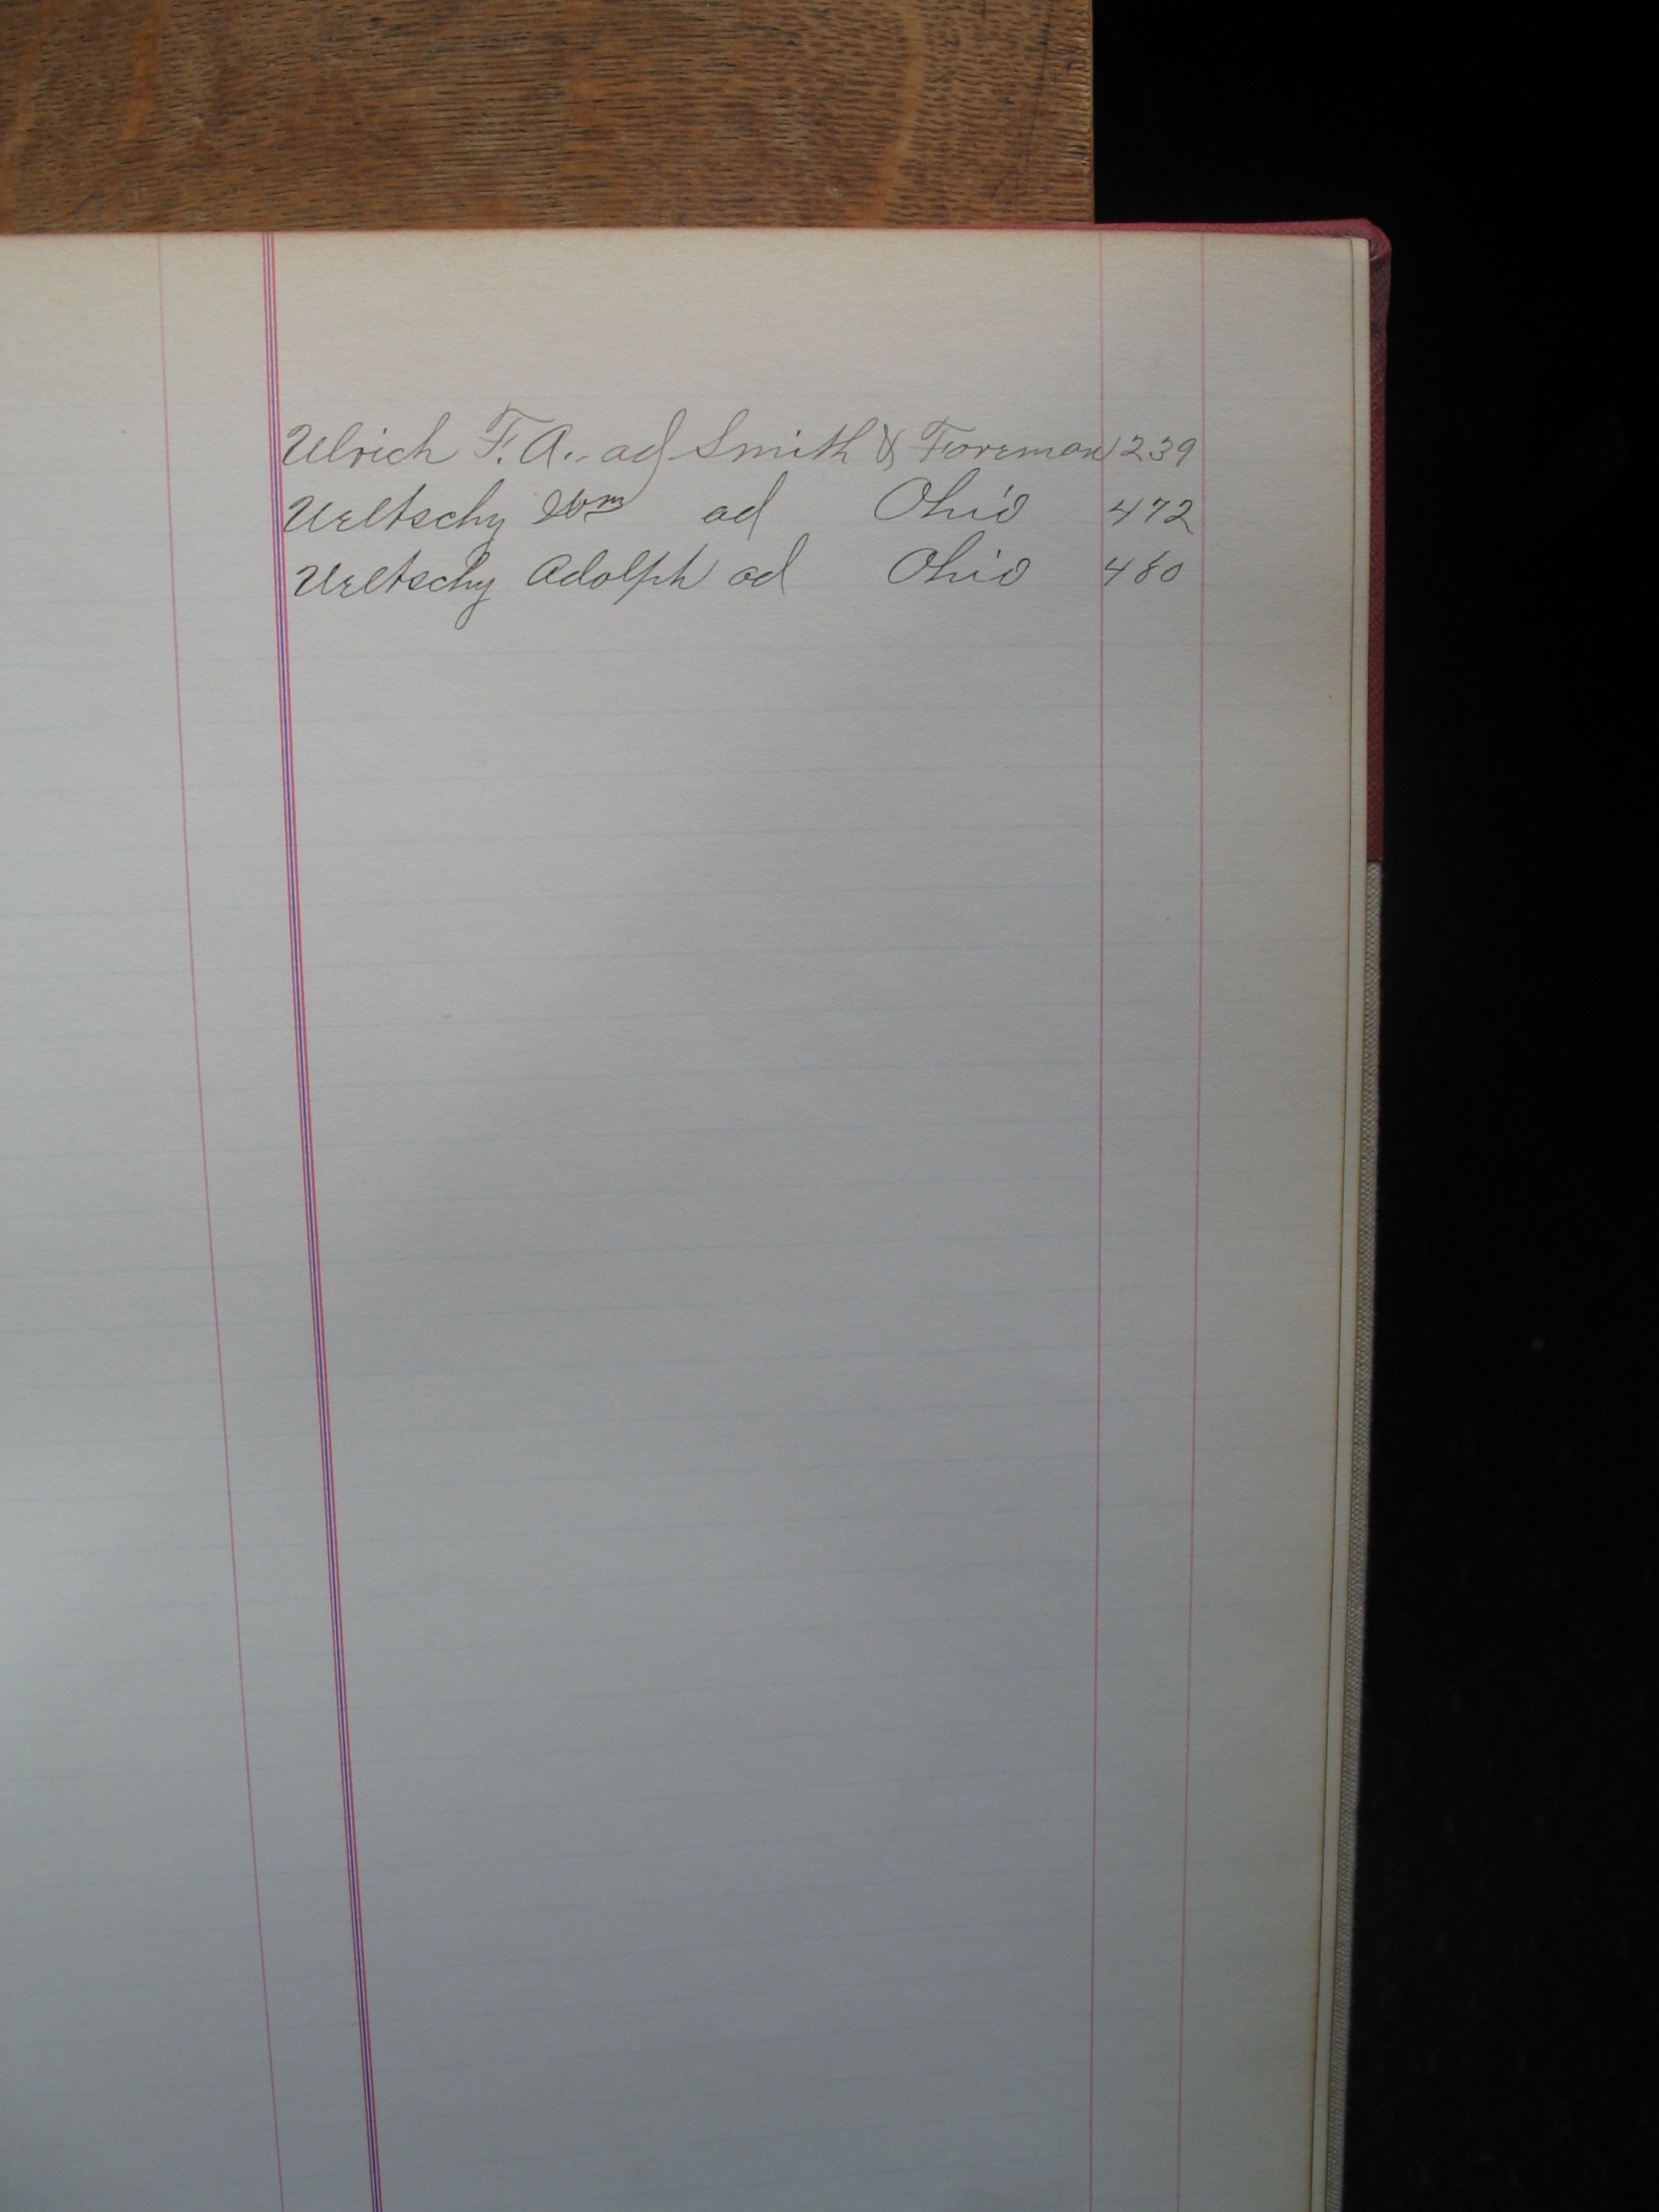 Ulrich F. A. ad Smith & Foreman 239
Ueltschy Wm ad Ohio 472
Ueltschy Adolph ad Ohio 480